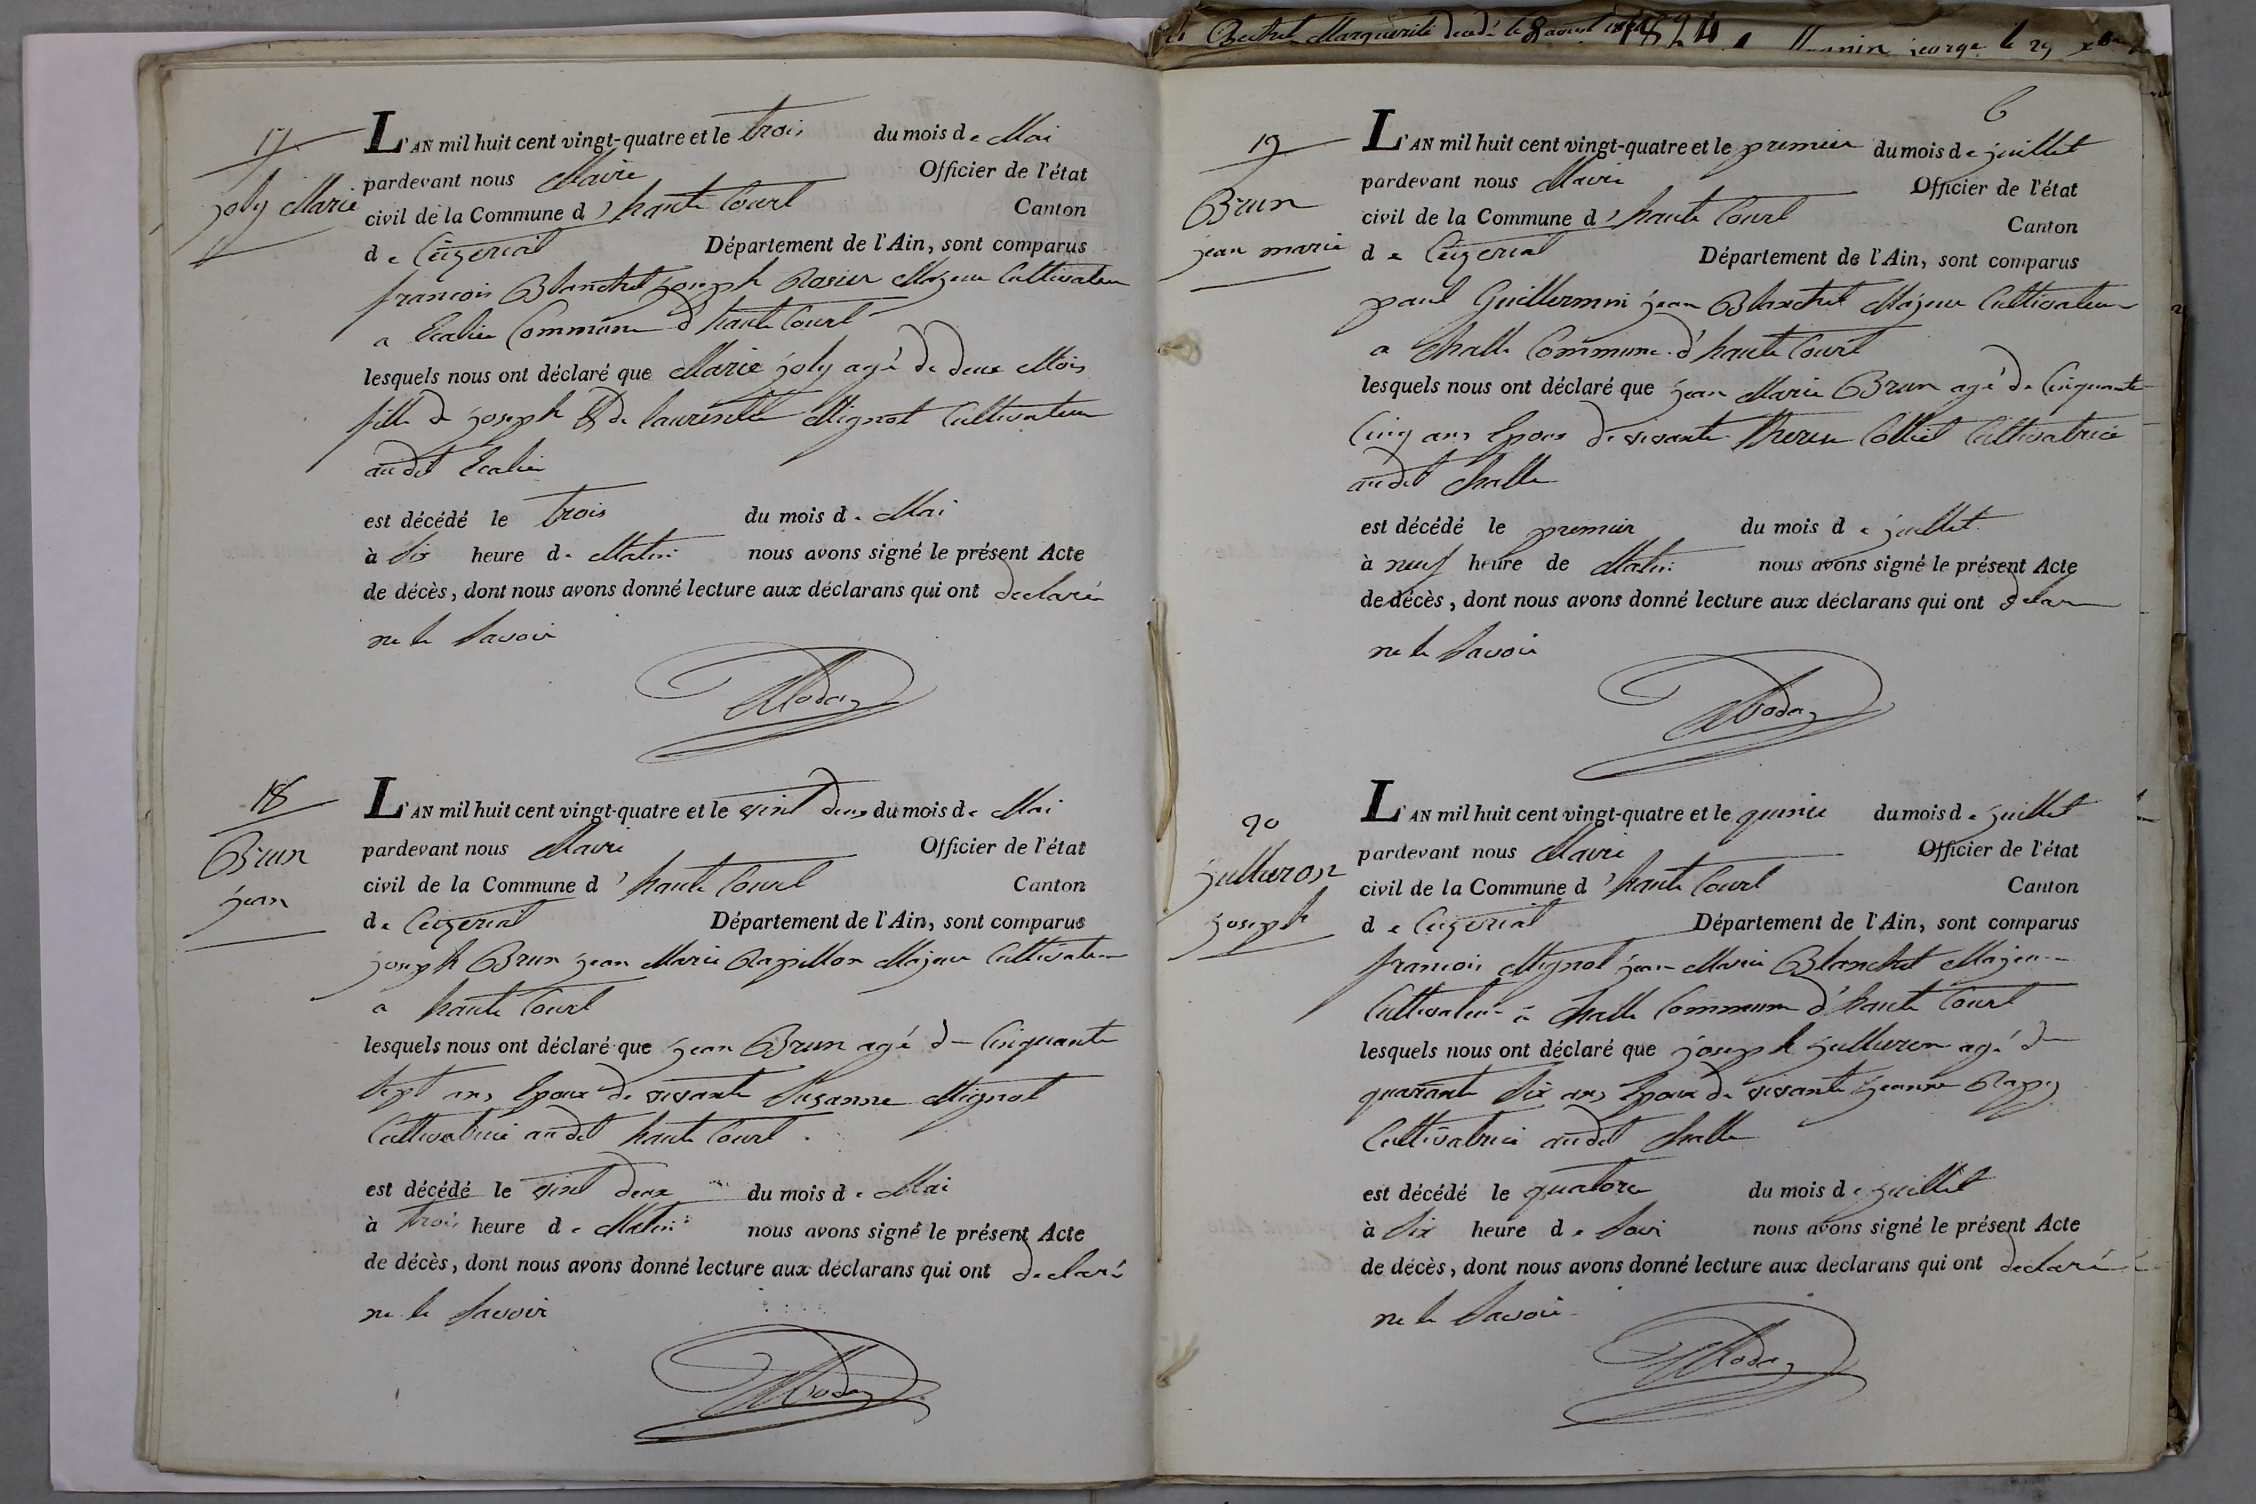 17
joly Marie
L'AN mil huit cent vingt-quatre et le trois du mois de Mai
pardevant nous Maire Officier de l'état
civil de la Commune d'haute Court Canton
de Ceizeriat Département de l'Ain, sont comparus
francois Blanchet joseph Rosier Majeur Cultivateur
a Commune d'haute Court
lesquels nous ont déclaré que Marie joly agé de deux Mois
fille de joseph & de Mignot Cultivateur
audit
est décédé le trois du mois de Mai
à Six heure de Matin nous avons signé le présent Acte
de décès, dont nous avons donné lecture aux déclarans qui ont declaré
ne le Savoir
18
Brun
jean
L'AN mil huit cent vingt-quatre et le vint deux du mois de Mai
pardevant nous Maire Officier de l'état
civil de la Commune d'haute Court Canton
de Ceizeriat Département de l'Ain, sont comparus
joseph Brun jean Marie Rapillon Majeur Cultivateur
a haute Court
lesquels nous ont déclaré que jean Brun agé de Cinquante
Sept ans Epoux de vivante Susanne Mignot
Cultivatrice audit haute Court
est décédé le vint deux du mois de Mai
à trois heure de Matin nous avons signé le présent Acte
de décès, dont nous avons donné lecture aux déclarans qui ont declaré
ne le Savoir
Marguerite 1824 george le 29
6
19
Brun
jean marie
L'AN mil huit cent vingt-quatre et le premier du mois de juillet
pardevant nous Maire Officier de l'état
civil de la Commune d'haute Court Canton
de Ceizeriat Département de l'Ain, sont comparus
paul Guillermin jean Blanchet Majeur Cultivateur
a Challe Commune d'haute Court
lesquels nous ont déclaré que jean Marie Brun agé de Cinquante
Cinq ans Epoux de vivante Cultivatrice
audit Challe
est décédé le premier du mois de juillet
à neuf heure de Matin nous avons signé le présent Acte
de décès, dont nous avons donné lecture aux déclarans qui ont
ne le Savoir
20
julluron
joseph
L'AN mil huit cent vingt-quatre et le quinze du mois de juillet
pardevant nous Maire Officier de l'état
civil de la Commune d'haute Court Canton
de Ceizeriat Département de l'Ain, sont comparus
francois Mignot jean Marie Blanchet Majeur
Cultivateur a Challe Commune d'haute Court
lesquels nous ont déclaré que joseph julluron agé de
quarante Six ans Epoux de vivante jeanne
Cultivatrice audit Challe
est décédé le quatorze du mois de juillet
à Six heure de Soir nous avons signé le présent Acte
de décès, dont nous avons donné lecture aux déclarans qui ont declaré
ne le Savoir